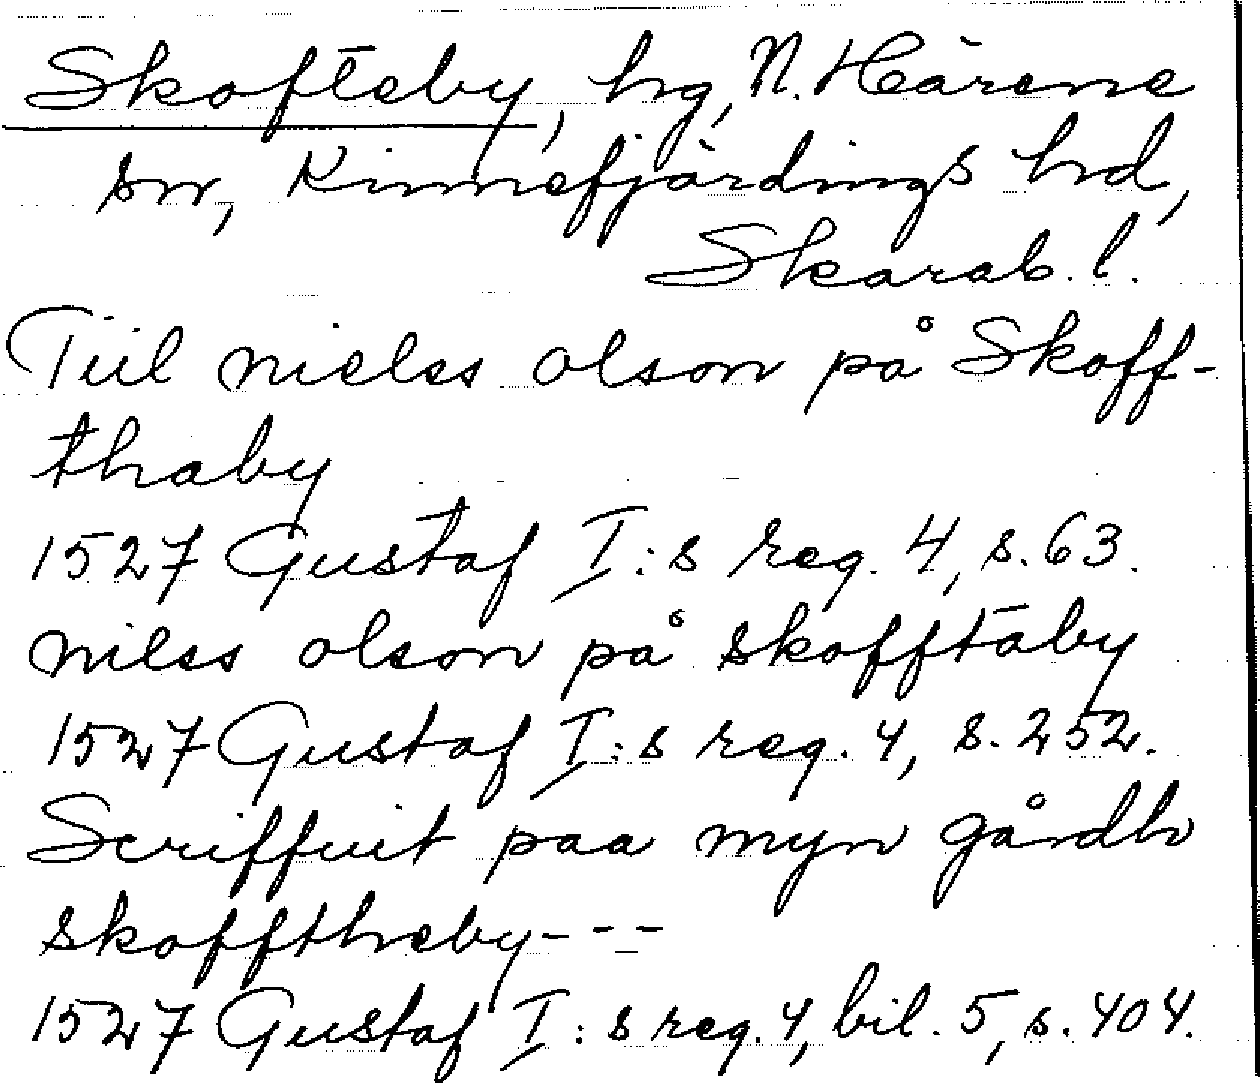 Skofteby, hg, N. Härene
sn, Kinnefjärdings hd,
Skarab. l.
Tiil nielss olson på Skoff-
thaby
1527 Gustaf I:s reg. 4, s. 63.
nilss olson på skofftäby
1527 Gustaf I:s reg. 4, s. 252.
Scriffuit paa myn gårdh
skofftheby---
1527 Gustaf I:s reg. 4, bil. 5, s. 404.